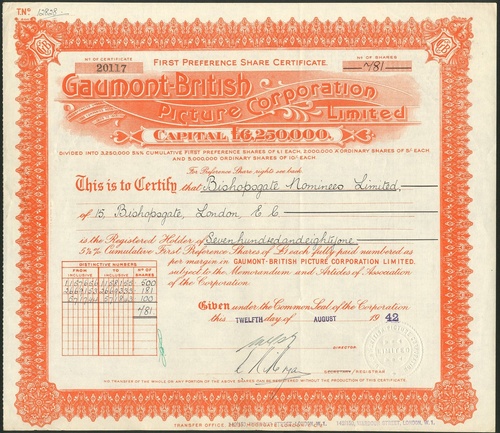 T.Nº 12828
Nº OF CERTIFICATE
20117
FIRST PREFERENCE SHARE CERTIFICATE.
Nº OF SHARES
-781-
Gaumont-British
Picture Corporation
Limited
CAPITAL £6,250,000.
DIVIDED INTO 3,250,000 5½% CUMULATIVE FIRST PREFERENCE SHARES OF £1 EACH, 2,000,000 "A" ORDINARY SHARES OF 5/- EACH
AND 5,000,000 ORDINARY SHARES OF 10/- EACH.
For Preference Share rights see back
This is to Certify that Bishopsgate Nominees Limited,
of 15, Bishopsgate, London, E.C.
is the Registered Holder of Seven hundred and eighty one
5½% Cumulative First Preference Shares of £1 each fully paid numbered as
per margin in GAUMONT-BRITISH PICTURE CORPORATION LIMITED.
subject to the Memorandum and Articles of Association
of the Corporation.
DISTINCTIVE NUMBERS
FROM INCLUSIVE
TO INCLUSIVE
Nº OF SHARES
500
181
100
781
Given under the Common Seal of the Corporation
this TWELFTH day of AUGUST 1942
DIRECTOR
REGISTRAR
NO TRANSFER OF THE WHOLE OR ANY PORTION OF THE ABOVE SHARES CAN BE REGISTERED WITHOUT THE PRODUCTION OF THIS CERTIFICATE.
TRANSFER OFFICE